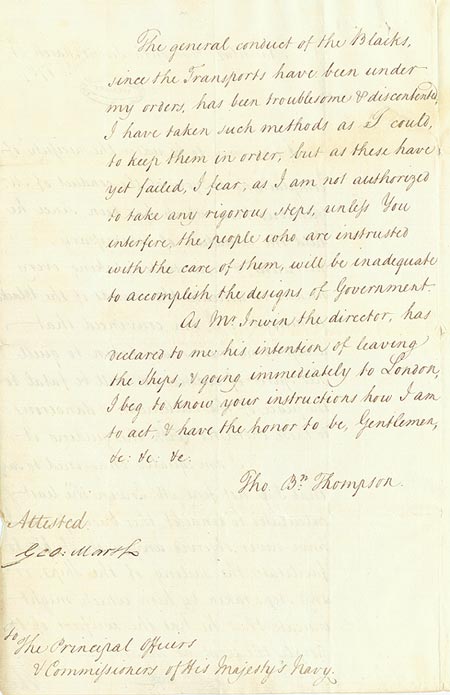 The general conduct of the Blacks,
since the Transports have been under
my orders, has been troublesome & discontented,
I have taken such methods as I could,
to keep them in order, but as these have
yet failed, I fear, as I am not authorized
to take any rigorous steps, unless You
interfere, the people who are instrusted
with the care of them, will be inadequate
to accomplish the designs of Government.
As Mr. Irwin the director, has
declared to me his intention of leaving
the Ships, & going immediately to London,
I beg to know your instructions how I am
to act, & have the honor to be, Gentlemen,
&c: &c: &c.
Tho. Bn. Thompson.
Attested
Geo: Marsh
To
The Principal Officers
& Commissioners of His Majesty's Navy.